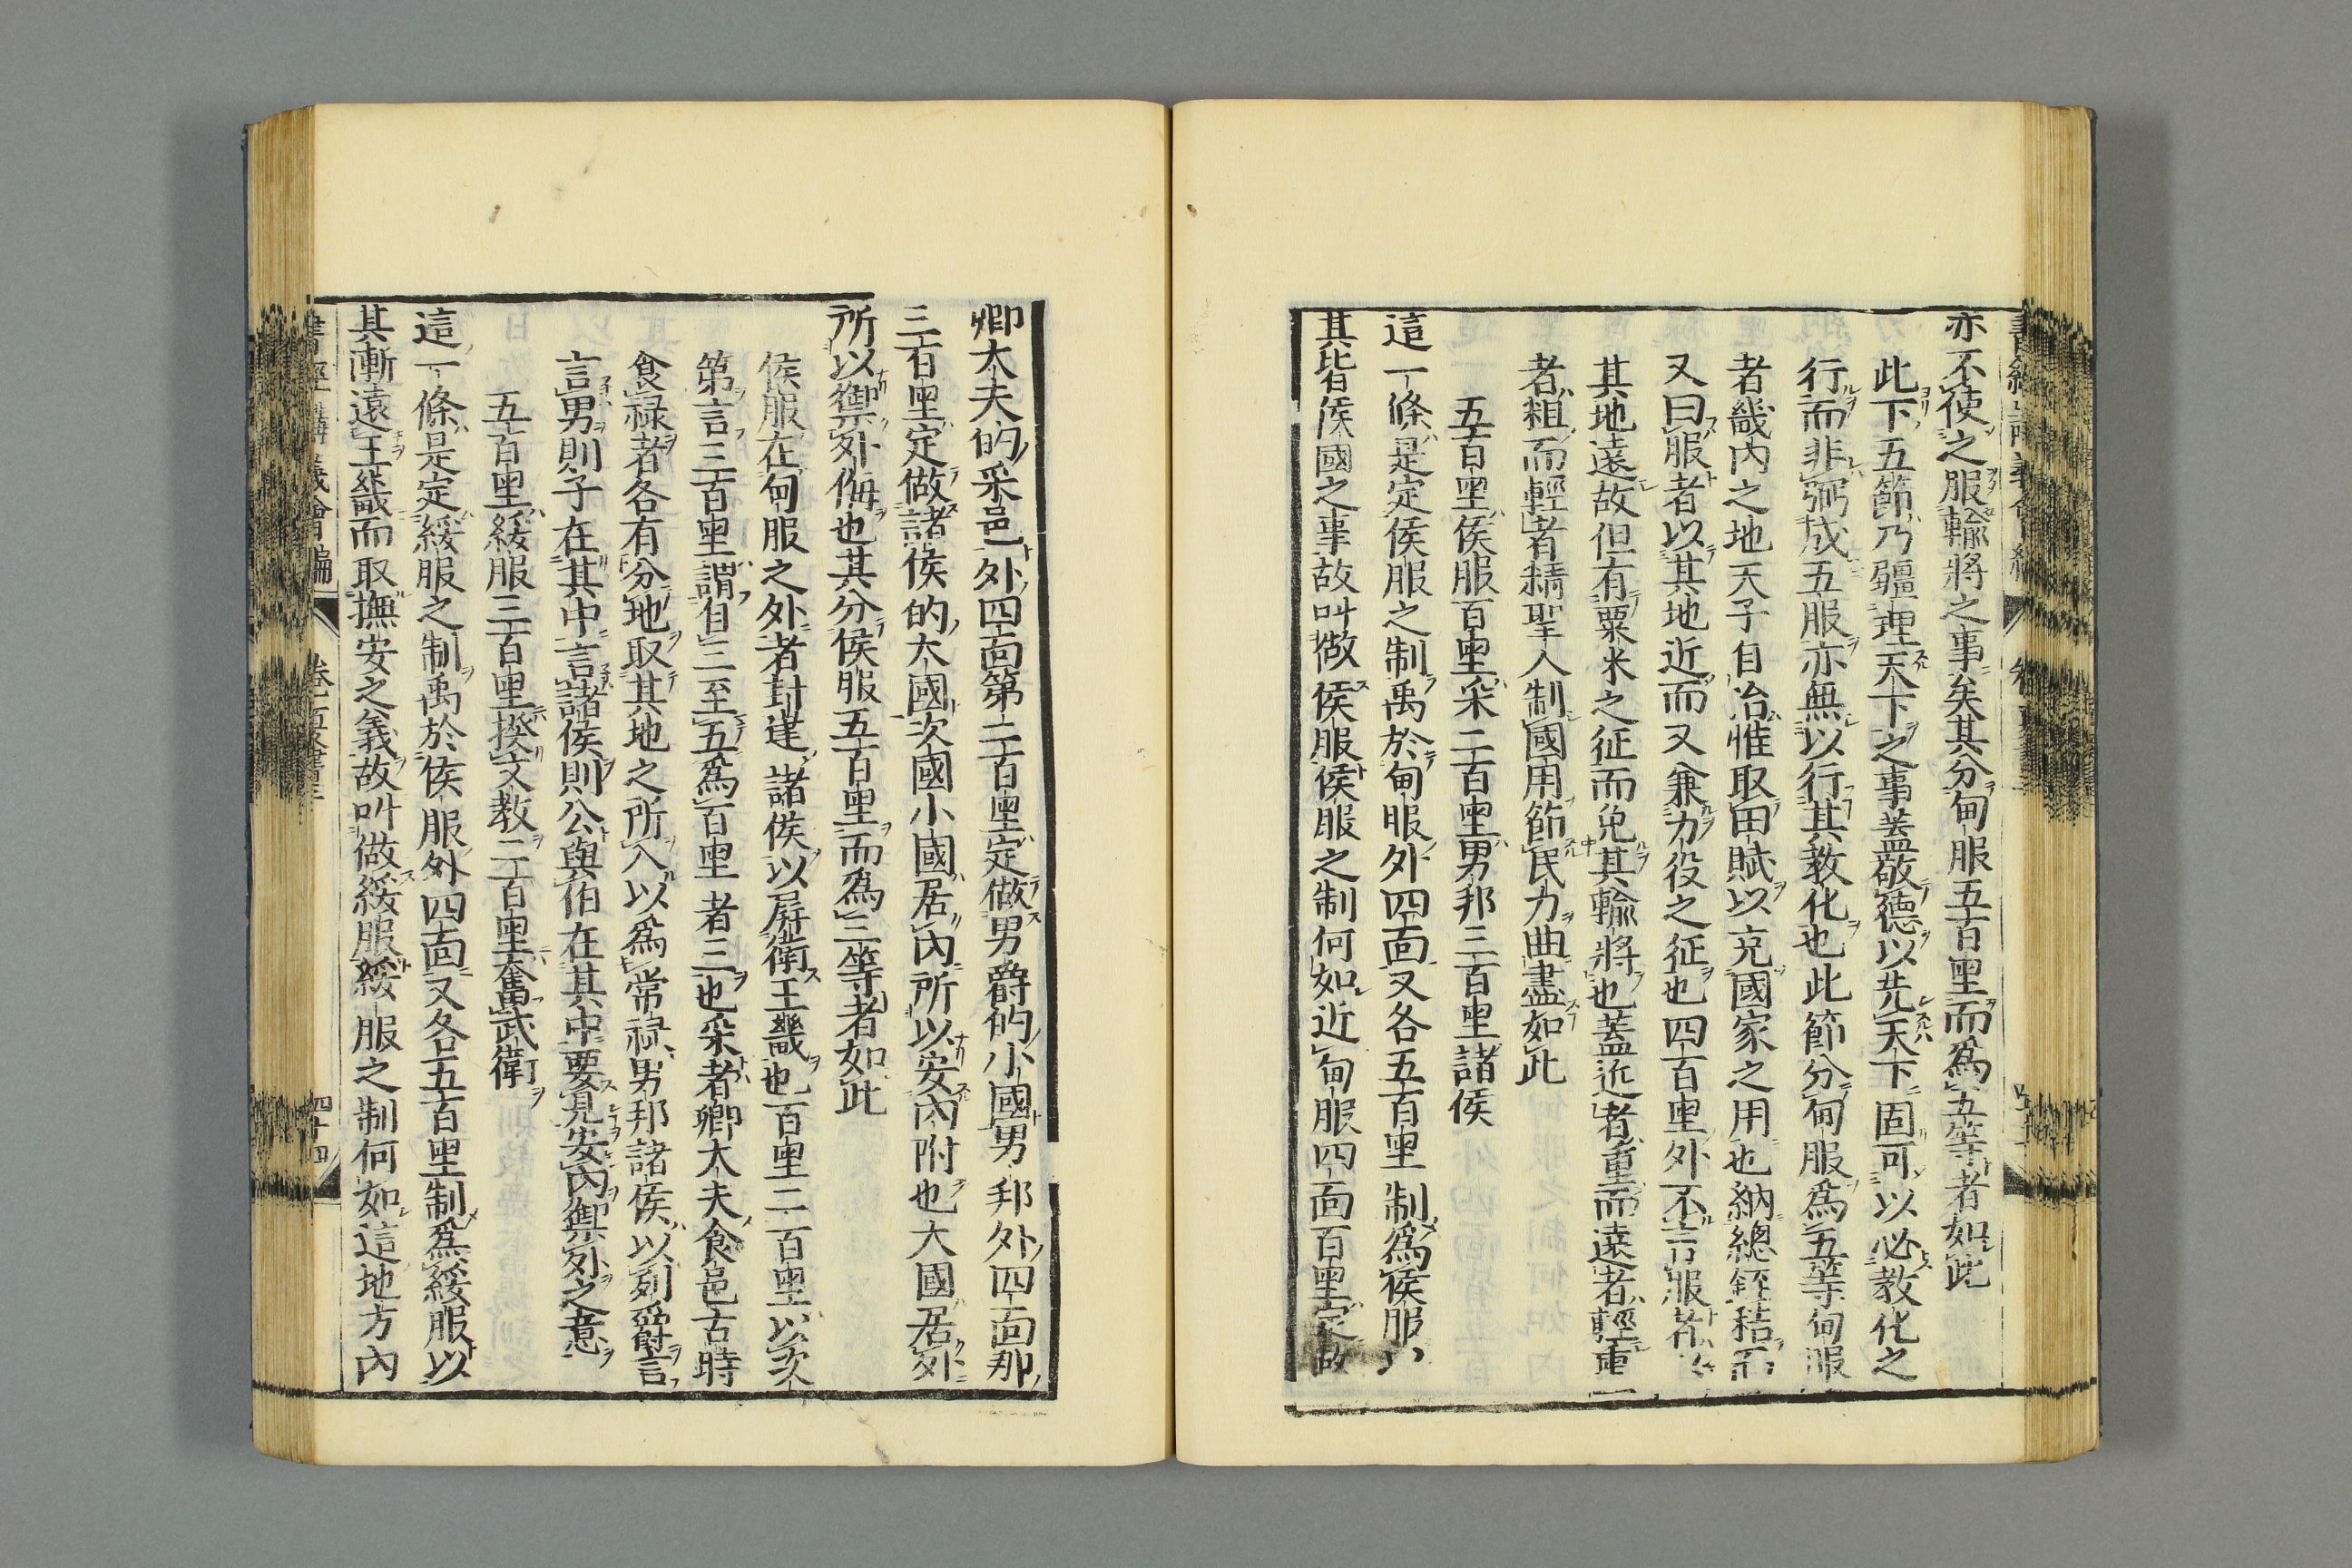 亦不使之服輸將之事矣其分甸服五百里而爲五等者如此
此下五節乃疆理天下之事蓋敬德以先天下固可以必教化之
行而非弼成五服亦無以行其教化也此節分甸服爲五等甸服
者畿內之地天子自治惟取田賦以充國家之用也納總銍秸而
又曰服者以其地近而又兼力役之征也四百里外不言服者
其地遠故但有粟米之征而免其輸將也蓋近者重而遠者輕重
者粗而輕者精聖人制國用節民力曲盡如此
五百里侯服百里采二百里男邦三百里諸侯
這一條是定侯服之制禹於甸服外四面又各五百里制爲侯服以
其皆侯國之事故叫做侯服侯服之制何如近甸服四面百里定做
卿大夫的采邑外四面第二百里定做男爵的小國男邦外四面那
三百里定做諸侯的大國次國小國居內所以安內附也大國居外
所以禦外侮也其分侯服五百里而爲三等者如此
侯服在甸服之外者封建諸侯以屏衛王畿也百里二百里以次
第言三百里謂自三至五爲百里者三也采者卿大夫食邑古時
食祿者各有分地取其地之所入以爲常祿男邦諸侯以列爵言
言男則子在其中言諸侯則公與伯在其中要見安內禦外之意
五百里綏服三百里揆文教二百里奮武衛
這一條是定綏服之制禹於侯服外四面又各五百里制爲綏服以
其漸遠王畿而取撫安之義故叫做綏服綏服之制何如這地方內
書經講義會編 卷之五 夏書 四十四